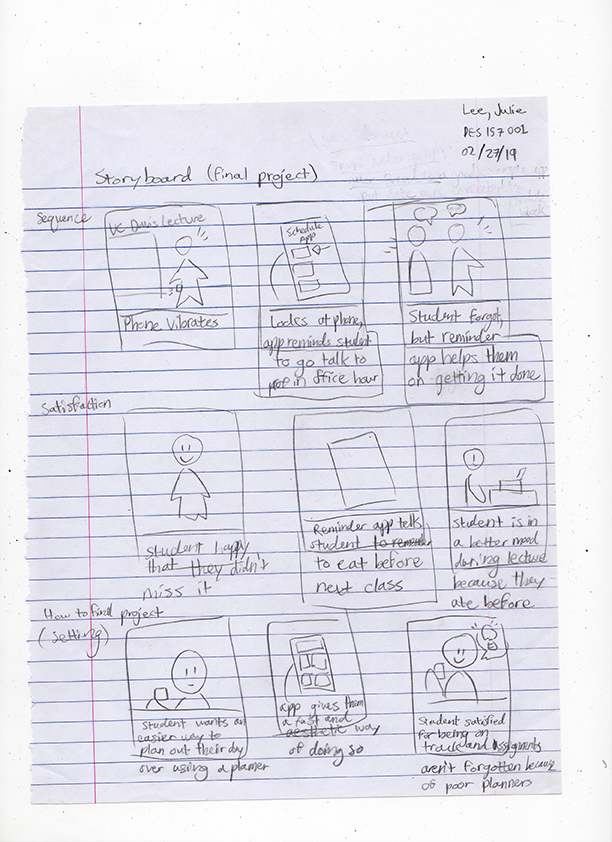 Lee, Julie
DES 157 001
02/27/19
Storyboard (final project)
Sequence
UC Davis Lecture
Phone Vibrates
Schedule
App
Looks at phone,
app reminds student
to go talk to
prof in office hour
Student forgot,
but reminder
app helps them
on getting it done
Satisfaction
Student happy
that they didn't
miss it
Reminder app tells
student to remember
to eat before
next class
Student is in
a better mood
during lecture
because they
ate before
How to find project
(setting)
Student wants an
easier way to
plan out their day
over using a planner
app gives them
a fast and
aesthetic way
of doing so
Student satisfied
for being on
track and assignments
aren't forgotten because
of poor planners